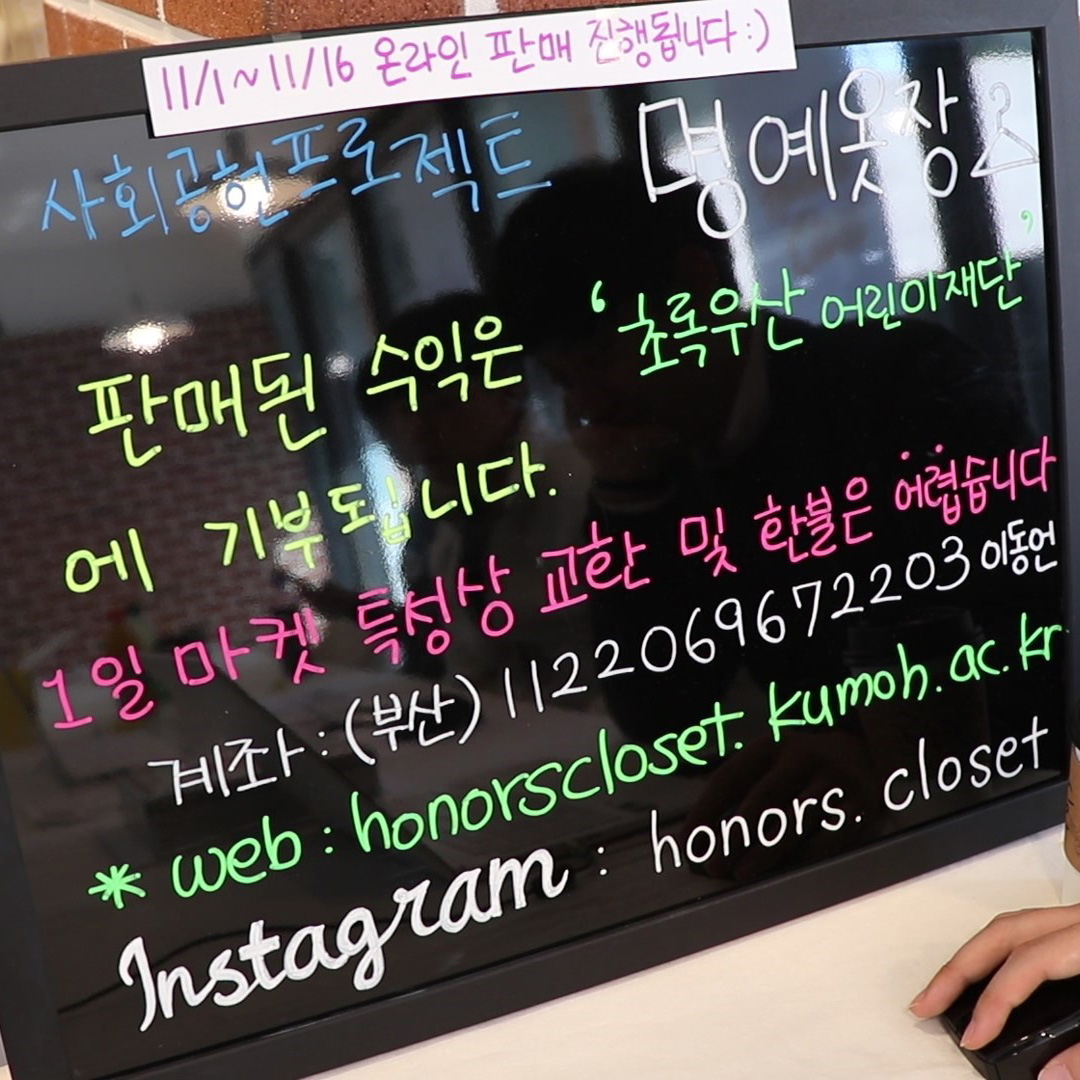 11/1~11/16 온라인 판매 진행됩니다:)
사회공헌프로젝트 명예옷장
판매된 수익은 '초록우산 어린이재단'
에 기부됩니다.
1일 마켓 특성상 교환 및 한불은 어렵습니다
계좌:(부산) 1122069672203 이동언
* web : honorscloset.kumoh.ac.kr
Instagram : honors.closet